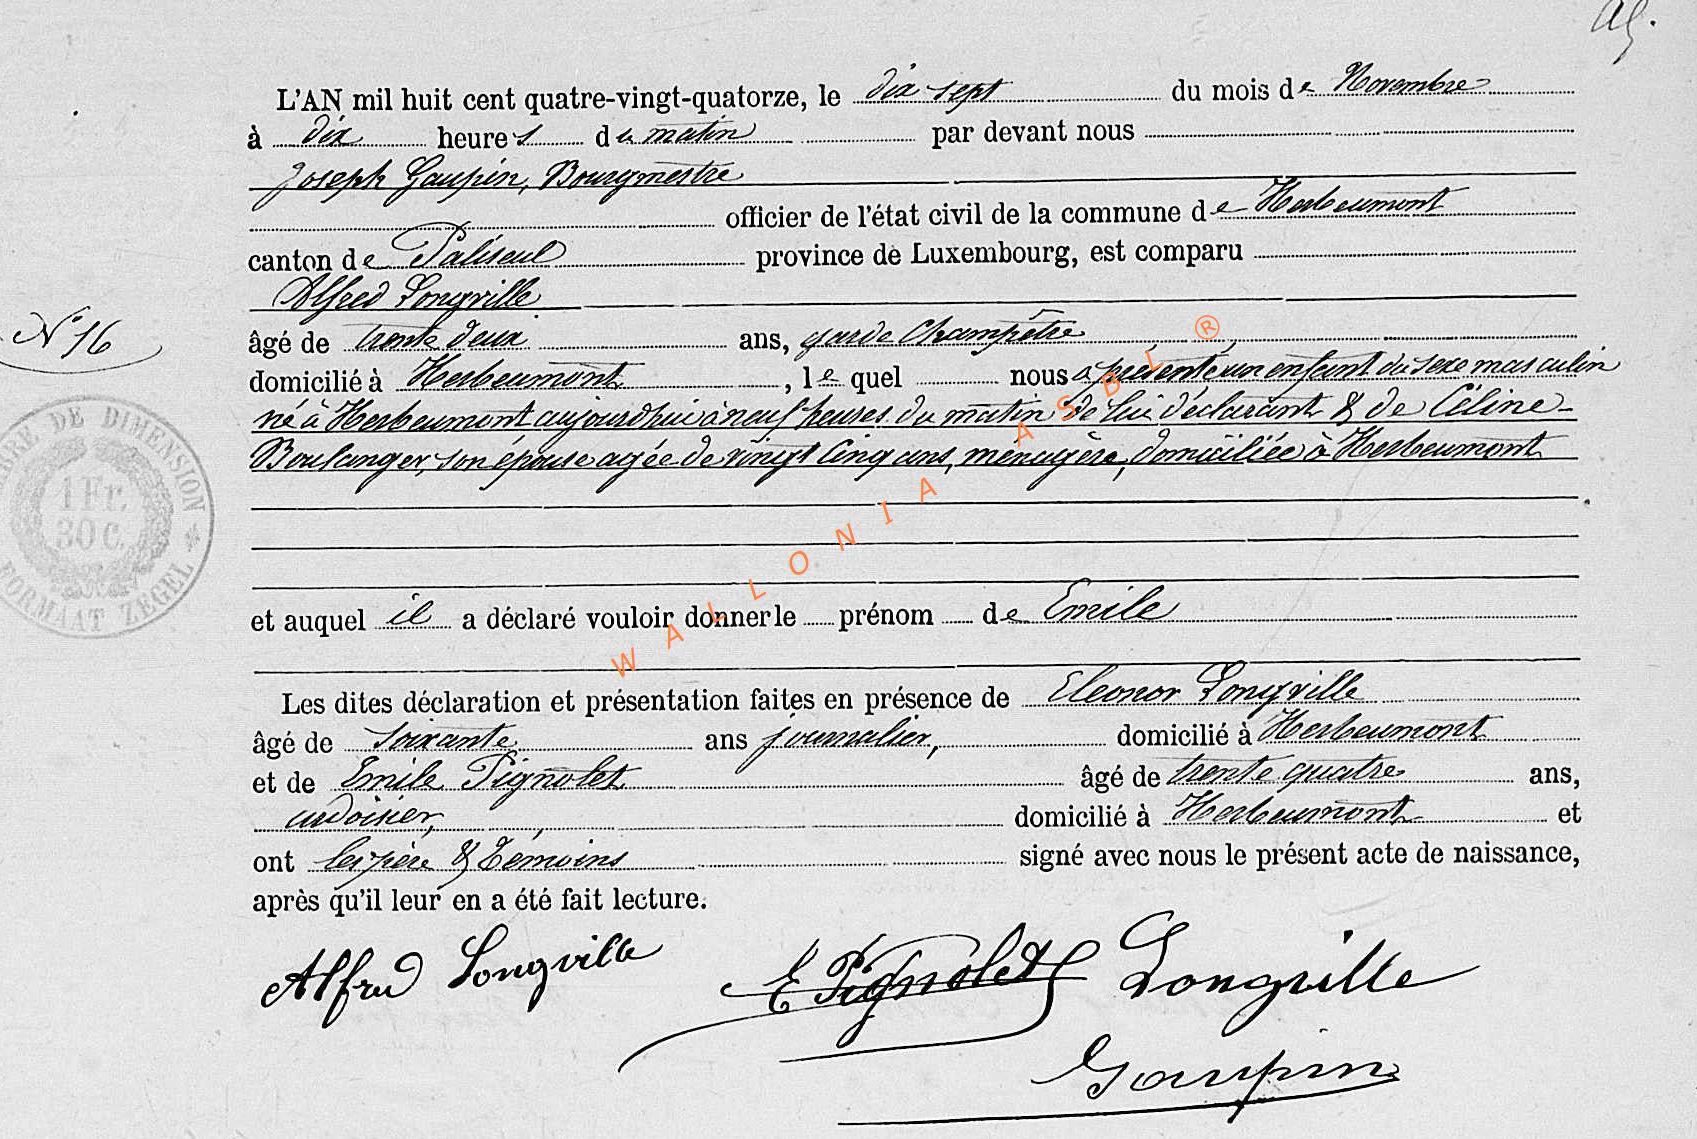 L'AN mil huit cent quatre-vingt-quatorze, le dix sept du mois de Novembre
à dix heures du matin par devant nous
Joseph Gaupin, Bourgmestre
officier de l'état civil de la commune de Herbeumont
canton de Paliseul province de Luxembourg, est comparu
Alfred Longville
N° 16
âgé de trente deux ans, garde Champêtre,
domicilié à Herbeumont, le quel nous a présenté un enfant du sexe masculin
né à Herbeumont aujourd'hui à neuf heures du matin de lui déclarant & de Céline
Boulanger, son épouse agée de vingt cinq ans, ménagère, domiciliée à Herbeumont
TIMBRE DE DIMENSION
1 Fr.
30 C.
FORMAAT ZEGEL
WALLONIA ASBL ®
et auquel il a déclaré vouloir donner le prénom de Emile
Les dites déclaration et présentation faites en présence de Eleonor Longville
âgé de soixante ans journalier, domicilié à Herbeumont
et de Emile Pignolet âgé de trente quatre ans,
ardoisier, domicilié à Herbeumont et
ont les père & témoins signé avec nous le présent acte de naissance,
après qu'il leur en a été fait lecture.
Alfred Longville E Pignolet Longville
Gaupin